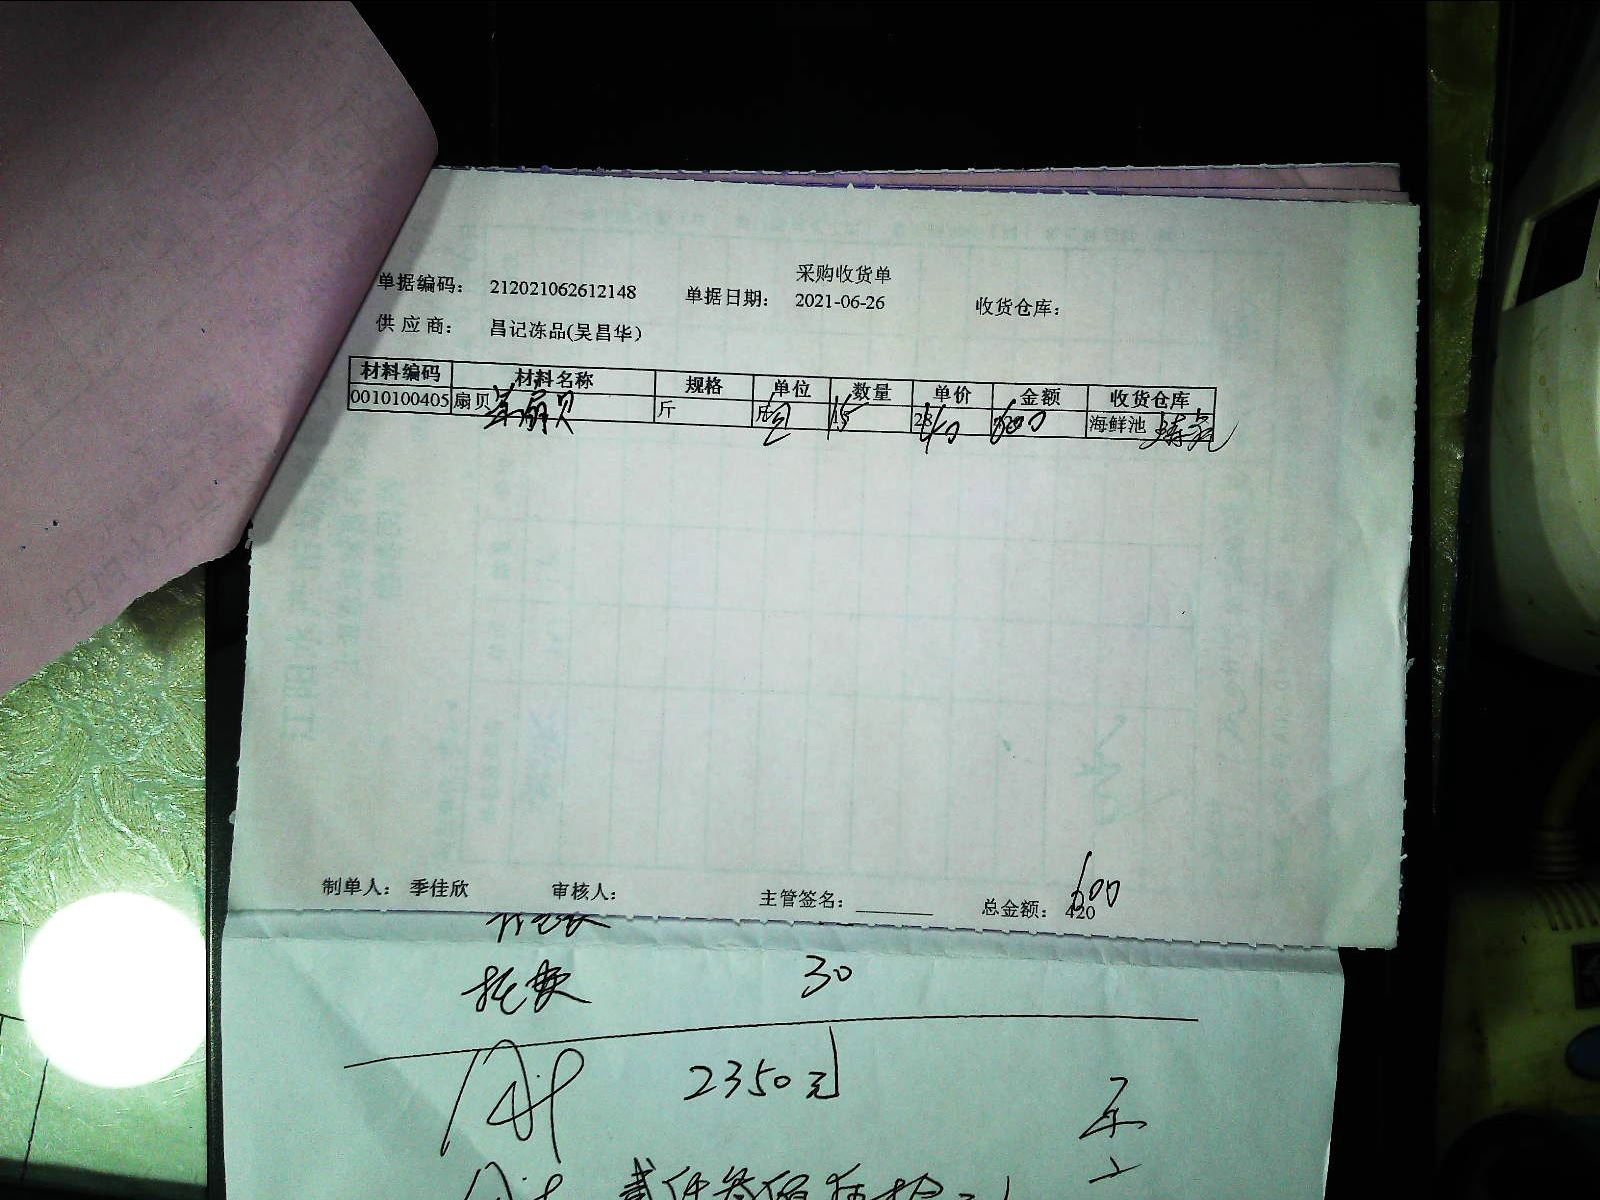 采购收货单
单据编码： 212021062612148 单据日期： 2021-06-26 收货仓库：
供应商： 昌记冻品(吴昌华)
材料编码 材料名称 规格 单位 数量 单价 金额 收货仓库
0010100405 扇贝 扇贝 斤 包 15 28 600 海鲜池
制单人： 季佳欣 审核人： 主管签名： 总金额： 420 600
托费 30
2350元